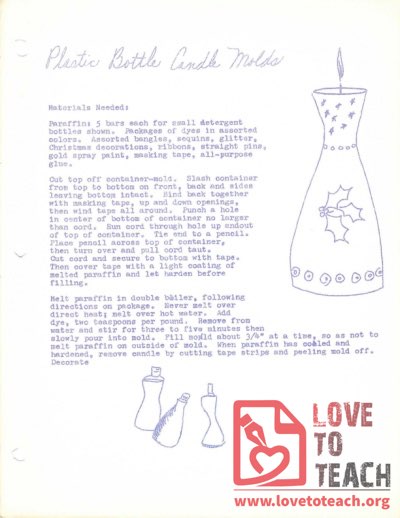 Plastic Bottle Candle Molds
Materials Needed:
Paraffin: 5 bars each for small detergent
bottles shown. Packages of dyes in assorted
colors. Assorted bangles, sequins, glitter,
Christmas decorations, ribbons, straight pins,
gold spray paint, masking tape, all-purpose
glue.
Cut top off container-mold. Slash container
from top to bottom on front, back and sides
leaving bottom intact. Bind back together
with masking tape, up and down openings,
then wind tape all around. Punch a hole
in center of bottom of container no larger
than cord. Run cord through hole up and out
of top of container. Tie end to a pencil.
Place pencil across top of container,
then turn over and pull cord taut.
Cut cord and secure to bottom with tape.
Then cover tape with a light coating of
melted paraffin and let harden before
filling.
Melt paraffin in double boiler, following
directions on package. Never melt over
direct heat; melt over hot water. Add
dye, two teaspoons per pound. Remove from
water and stir for three to five minutes then
slowly pour into mold. Fill mold about 3/4" at a time, so as not to
melt paraffin on outside of mold. When paraffin has cooled and
hardened, remove candle by cutting tape strips and peeling mold off.
Decorate
LOVE
TO
TEACH
www.lovetoteach.org